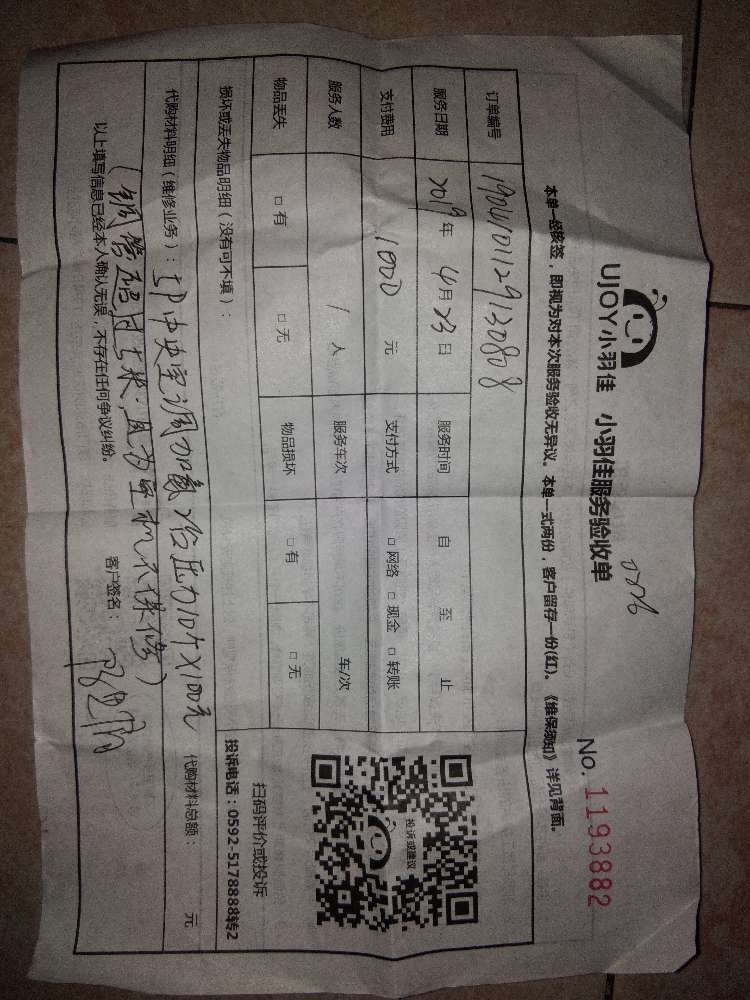 UJOY小羽佳 小羽佳服务验收单
No. 1193882
本单一经核签，即视为对本次服务验收无异议。本单一式两份，客户留存一份(红)。《维保须知》详见背面。
订单编号 190401129130808
服务日期 2019年 4月 23日 服务时间 自 至 止
支付费用 1000 元 支付方式 □ 网络 □ 现金 □ 转账
服务人数 1 人 服务车次 车/次
物品丢失 □ 有 □ 无 物品损坏 □ 有 □ 无
损坏或丢失物品明细（没有可不填）：
扫码评价或投诉
投诉电话：0592-5178888转2
投诉或建议
代购材料明细（维修业务）：5P中央空调加氟2台压力10个X100元 代购材料总额： 元
（铜管超过七米，且为旧机不保修）
以上填写信息已经本人确认无误，不存在任何争议纠纷。 客户签名：